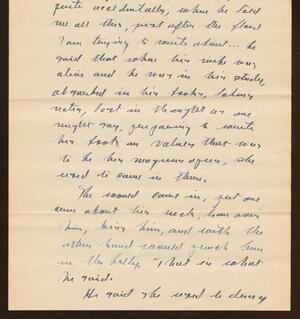 quite accidentally, when he told
me all this, just after the flood
I am trying to write about... he
said that when his wife was
alive and he was in his study,
absorbed in his books, taking
notes, lost in thought as one
might say, preparing to write
his book on Values that was
to be his magnum opus, she
used to come in there.
She would come in, put one
arm about his neck, lean over
him, kiss him, and with the
other hand would punch him
in the belly. That is what
he said.
He said she used to